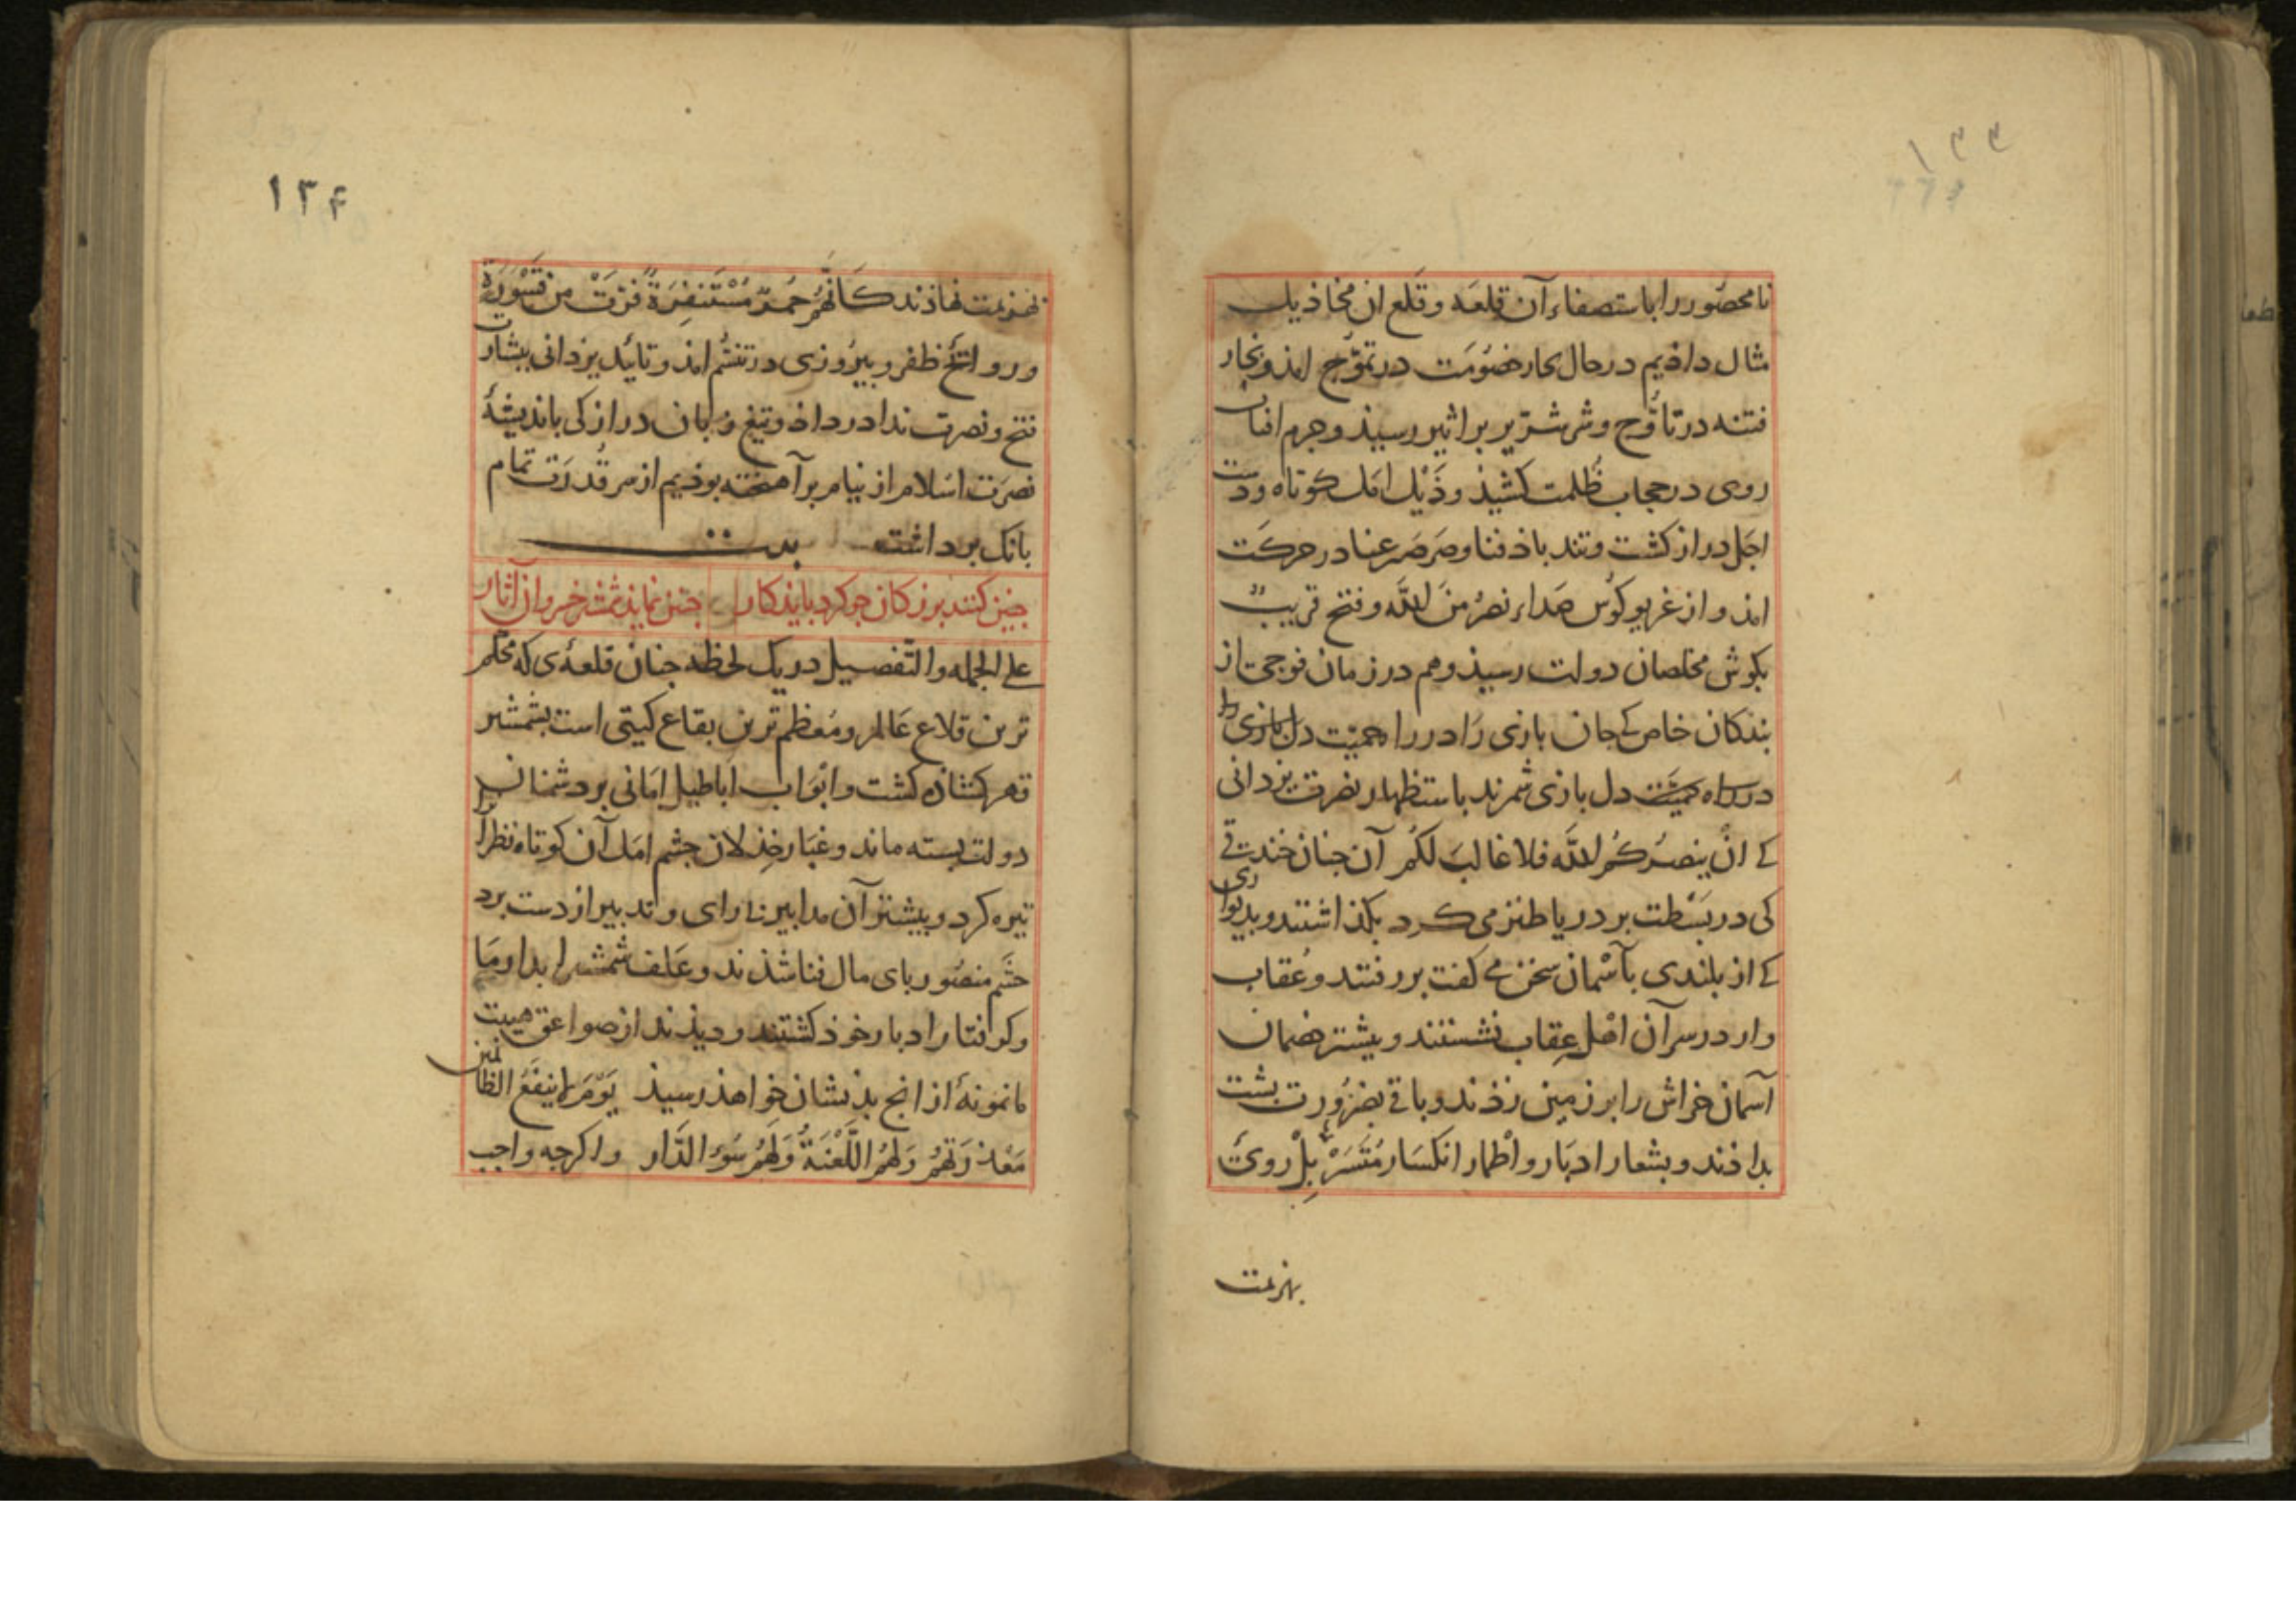 ۱۳۳
نامحصور را باستصفاء آن قلعه و قلع ان مخاذیل
مثال داذیم در حال بحار خصُومَت در تموّج امذ و بخار
فتنه در تاوّج و شر شریر براثیر رسیذ و جرم افتاب
روی در حجاب ظُلمت کشیذ و ذَیْل امَل کوتاه و دست
اجَل دراز کشت و تند باذ فنا و صَرصَر عنا در حرکَت
امذ و از غریو کوُس صَداء نصرٌ منَ اللّه و فتح قریبٌ
بکوش مخلصان دولت رسیذ و هم در زمان فوجی از
بندکان خاص کے جان بازی رَا در راه حمیّت دل بازی
در راه حمیّت دل بازی شمرند باستظهار نصرت یزدانی
کے انْ ینصُرْکُم اللَّه فلا غالبَ لکُم آن جنان خندقی
کی در بَسْطت بر دریا طنز می کرد بکذاشتند و بدیواری
کے از بلندی بآسْمان سخن می کفت بر رفتند و عُقاب
وار در سر آن اهْل عِقاب نشستند و بیشتر خصمان
آسمان خراش را بر زمین زذند و باقی بضرُورت بشت
بداذند و بشعار ادبَار و اطْمار انکسَار مُتَسَرْبِلْ روی
بهزیمت
۱۳۴
بهزیمت نهاذند کَاَنَّهُمْ حُمُرٌ مُسْتَنفِرَةٌ فَرَّتْ مِن قَسْوَرَةٍ
و روائح ظفر و بیرُوزی در تنسُّم امذ و تائید یزدانی ببشارت
فتح و نصرت ندا در داذ و تیغ زبان دراز کی باندیشۀ
نصرَت اسْلام از نیام بر آهخته بوذیم از سر قُدرَت تمام
بانک برداشت بیت
جنین کنند بزرکان جو کرد بایذ کار جنین نمایذ شمشیر خسروان آثار
علی الجمله و التّفصیل در یک لحظه جنان قلعۀ‌ی که محکم
ترین قلاع عَالم و مُعَظم ترین بقاع کیتی است بشمشیر
قهر کشاذه کشت و ابْوَاب اَباطیل اَمَانی بر دشمنان
دولت بسته ماند و غبَار خِذلان جشم امَل آن کوتاه نظران
تیره کرد و بیشتر آن مدابیر نا رای و تدبیر از دست برد
حشَم منصُور بای مال فنا شذند و علف شمشیر ابدار و ما
و کرفتار ادبار خوذ کشتند و دیذند از صواعق هیبت
ما نمونۀ از انج بذیشان خواهذ رسیذ یَوْمَ لا ینفَعُ الظالمین
مَعْذِرَتُهُمْ وَلَهُمُ اللَّعْنَةُ وَلَهُمْ سُوءُ الدَّار و اکرجه واجب